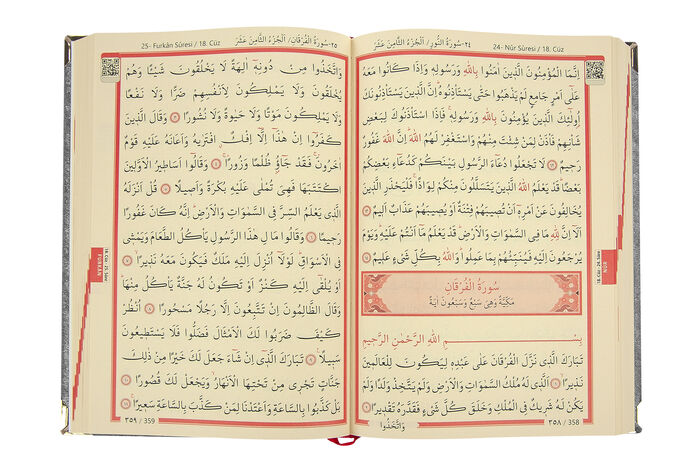 24- Nûr Sûresi / 18. Cüz
٢٤- سُورَةُ النُّورِ / اَلْجُزْءُ الثَّامِنَ عَشَرَ
اِنَّمَا الْمُؤْمِنُونَ الَّذٖينَ اٰمَنُوا بِاللّٰهِ وَرَسُولِهٖ وَاِذَا كَانُوا مَعَهُ
عَلٰٓى اَمْرٍ جَامِعٍ لَمْ يَذْهَبُوا حَتّٰى يَسْتَأْذِنُوهُ اِنَّ الَّذٖينَ يَسْتَأْذِنُونَكَ
اُولٰٓئِكَ الَّذٖينَ يُؤْمِنُونَ بِاللّٰهِ وَرَسُولِهٖ فَاِذَا اسْتَأْذَنُوكَ لِبَعْضِ
شَأْنِهِمْ فَأْذَنْ لِمَنْ شِئْتَ مِنْهُمْ وَاسْتَغْفِرْ لَهُمُ اللّٰهَ اِنَّ اللّٰهَ غَفُورٌ
رَحٖيمٌ ﴿٦٢﴾ لَا تَجْعَلُوا دُعَٓاءَ الرَّسُولِ بَيْنَكُمْ كَدُعَٓاءِ بَعْضِكُمْ
بَعْضًا قَدْ يَعْلَمُ اللّٰهُ الَّذٖينَ يَتَسَلَّلُونَ مِنْكُمْ لِوَاذًا فَلْيَحْذَرِ الَّذٖينَ
يُخَالِفُونَ عَنْ اَمْرِهٖٓ اَنْ تُصٖيبَهُمْ فِتْنَةٌ اَوْ يُصٖيبَهُمْ عَذَابٌ اَلٖيمٌ ﴿٦٣﴾
اَلَٓا اِنَّ لِلّٰهِ مَا فِى السَّمٰوَاتِ وَالْاَرْضِ قَدْ يَعْلَمُ مَٓا اَنْتُمْ عَلَيْهِ وَيَوْمَ
يُرْجَعُونَ اِلَيْهِ فَيُنَبِّئُهُمْ بِمَا عَمِلُوا وَاللّٰهُ بِكُلِّ شَىْءٍ عَلٖيمٌ ﴿٦٤﴾
سُورَةُ الْفُرْقَانِ
مَكِّيَّةٌ وَهِىَ سَبْعٌ وَسَبْعُونَ اٰيَةً
بِسْمِ اللّٰهِ الرَّحْمٰنِ الرَّحٖيمِ
تَبَارَكَ الَّذٖى نَزَّلَ الْفُرْقَانَ عَلٰى عَبْدِهٖ لِيَكُونَ لِلْعَالَمٖينَ
نَذٖيرًا ﴿١﴾ اَلَّذٖى لَهُ مُلْكُ السَّمٰوَاتِ وَالْاَرْضِ وَلَمْ يَتَّخِذْ وَلَدًا وَلَمْ
يَكُنْ لَهُ شَرٖيكٌ فِى الْمُلْكِ وَخَلَقَ كُلَّ شَىْءٍ فَقَدَّرَهُ تَقْدٖيرًا ﴿٢﴾
وَاتَّخَذُوا
٣٥٨ / 358
18. Cüz - 24. Sûre
NÛR
25- Furkân Sûresi / 18. Cüz
٢٥- سُورَةُ الْفُرْقَانِ / اَلْجُزْءُ الثَّامِنَ عَشَرَ
وَاتَّخَذُوا مِنْ دُونِهٖٓ اٰلِهَةً لَا يَخْلُقُونَ شَيْـًٔا وَهُمْ
يُخْلَقُونَ وَلَا يَمْلِكُونَ لِاَنْفُسِهِمْ ضَرًّا وَلَا نَفْعًا
وَلَا يَمْلِكُونَ مَوْتًا وَلَا حَيٰوةً وَلَا نُشُورًا ﴿٣﴾ وَقَالَ الَّذٖينَ
كَفَرُٓوا اِنْ هٰذَٓا اِلَّٓا اِفْكٌ افْتَرٰيهُ وَاَعَانَهُ عَلَيْهِ قَوْمٌ
اٰخَرُونَ فَقَدْ جَٓاؤُ ظُلْمًا وَزُورًا ﴿٤﴾ وَقَالُٓوا اَسَاطٖيرُ الْاَوَّلٖينَ
اكْتَتَبَهَا فَهِىَ تُمْلٰى عَلَيْهِ بُكْرَةً وَاَصٖيلًا ﴿٥﴾ قُلْ اَنْزَلَهُ
الَّذٖى يَعْلَمُ السِّرَّ فِى السَّمٰوَاتِ وَالْاَرْضِ اِنَّهُ كَانَ غَفُورًا
رَحٖيمًا ﴿٦﴾ وَقَالُوا مَالِ هٰذَا الرَّسُولِ يَأْكُلُ الطَّعَامَ وَيَمْشٖى
فِى الْاَسْوَاقِ لَوْلَٓا اُنْزِلَ اِلَيْهِ مَلَكٌ فَيَكُونَ مَعَهُ نَذٖيرًا ﴿٧﴾
اَوْ يُلْقٰٓى اِلَيْهِ كَنْزٌ اَوْ تَكُونُ لَهُ جَنَّةٌ يَأْكُلُ مِنْهَا
وَقَالَ الظَّالِمُونَ اِنْ تَتَّبِعُونَ اِلَّا رَجُلًا مَسْحُورًا ﴿٨﴾ اُنْظُرْ
كَيْفَ ضَرَبُوا لَكَ الْاَمْثَالَ فَضَلُّوا فَلَا يَسْتَطٖيعُونَ
سَبٖيلًا ﴿٩﴾ تَبَارَكَ الَّذٖٓى اِنْ شَٓاءَ جَعَلَ لَكَ خَيْرًا مِنْ ذٰلِكَ
جَنَّاتٍ تَجْرٖى مِنْ تَحْتِهَا الْاَنْهَارُ وَيَجْعَلْ لَكَ قُصُورًا ﴿١٠﴾
بَلْ كَذَّبُوا بِالسَّاعَةِ وَاَعْتَدْنَا لِمَنْ كَذَّبَ بِالسَّاعَةِ سَعٖيرًا ﴿١١﴾
٣٥٩ / 359
18. Cüz - 25. Sûre
FURKÂN